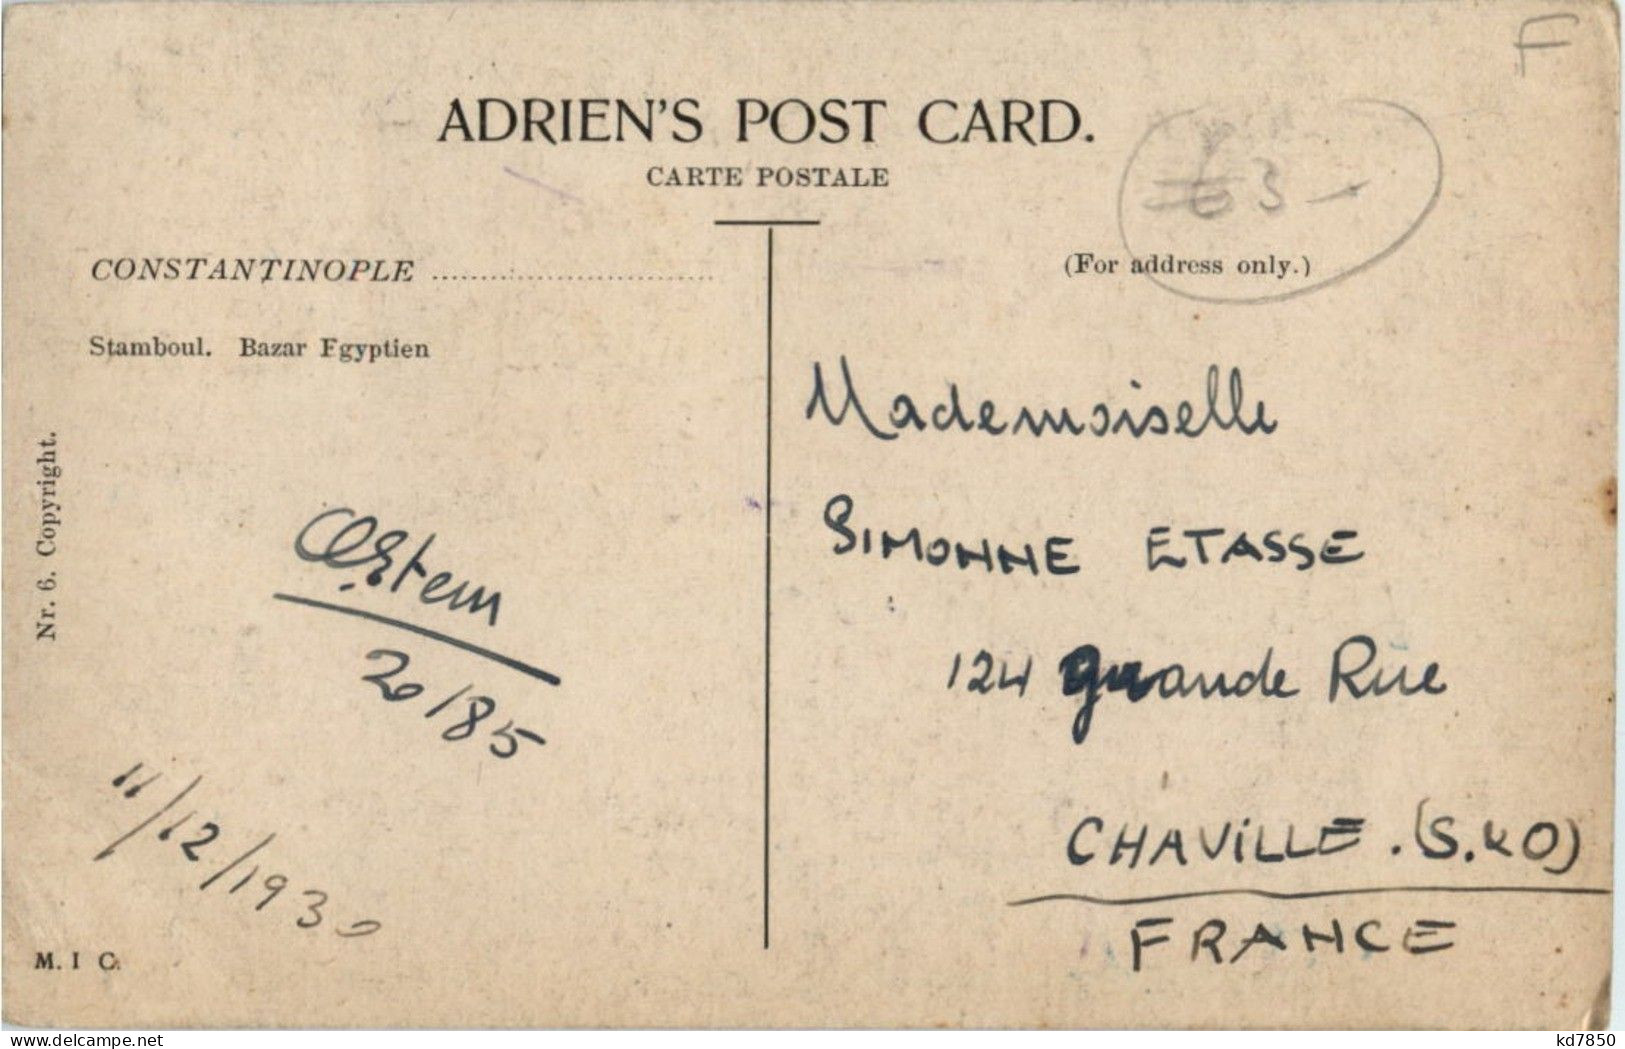 F
ADRIEN'S POST CARD.
CARTE POSTALE
63-
CONSTANTINOPLE
(For address only.)
Stamboul. Bazar Egyptien
Mademoiselle
SIMONNE ETASSE
124 grande Rue
CHAVILLE. (S.&O)
FRANCE
20185
11/12/1930
Nr. 6. Copyright.
M. I C.
www.delcampe.net
kd7850